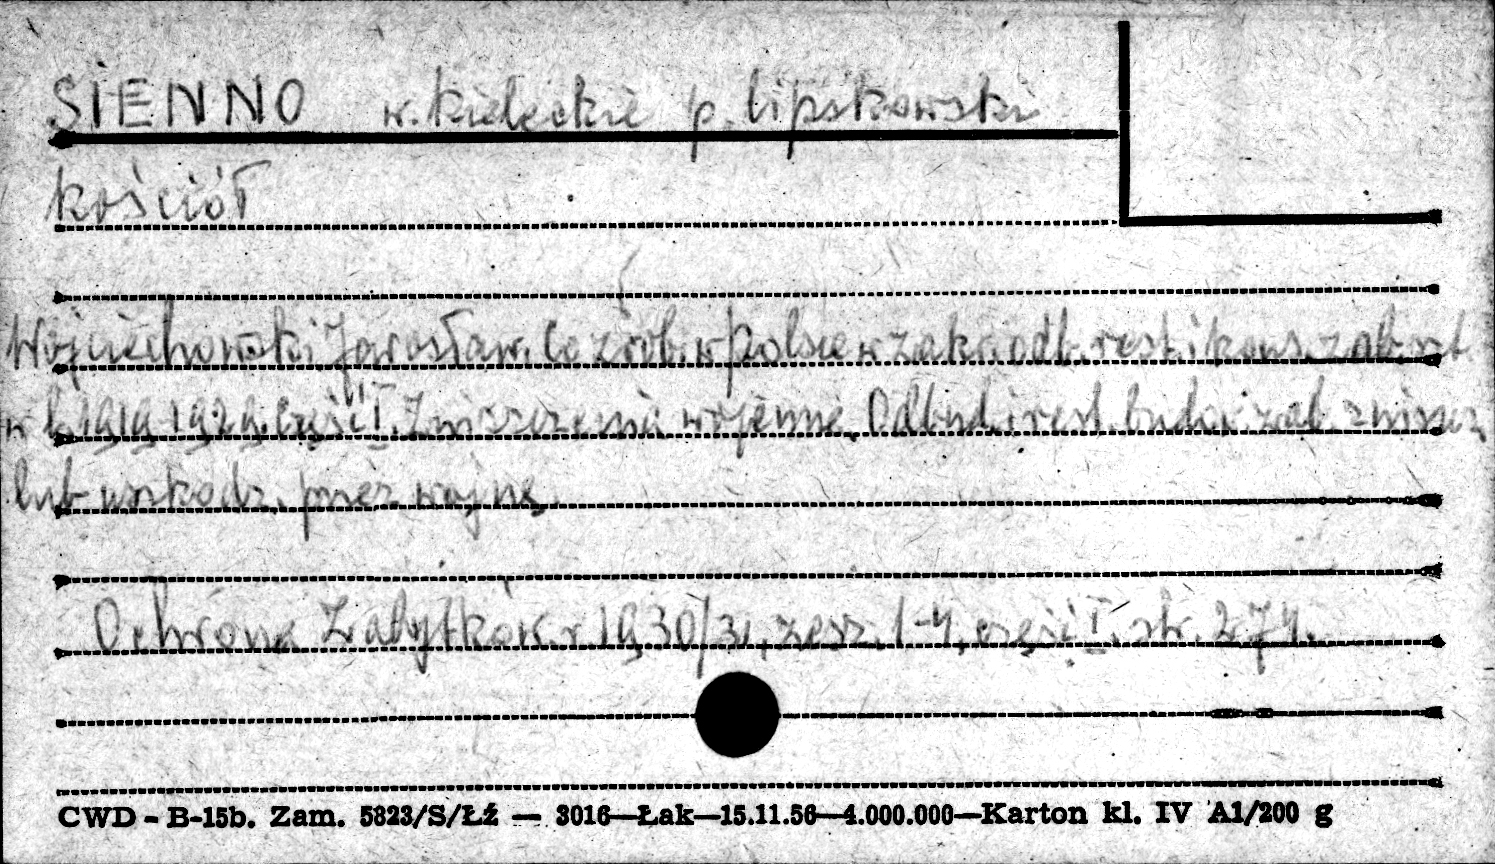 SIENNO w. kieleckie p. lipskowski
kościół
Wojciechowski Jarosław. Co zrob. w Polsce w zak. odb. rest. i kons. zab. szt.
w l. 1919-1929. Część I. Zniszczenia wojenne. Odbud. i rest. budow. zab. zniszcz.
lub uszkodz. przez wojnę.
Ochrona Zabytków r. 1930/31, zesz. 1-4, część I, str. 274.
CWD - B-15b. Zam. 5823/S/Łź — 3016—Łak—15.11.56—4.000.000—Karton kl. IV A1/200 g